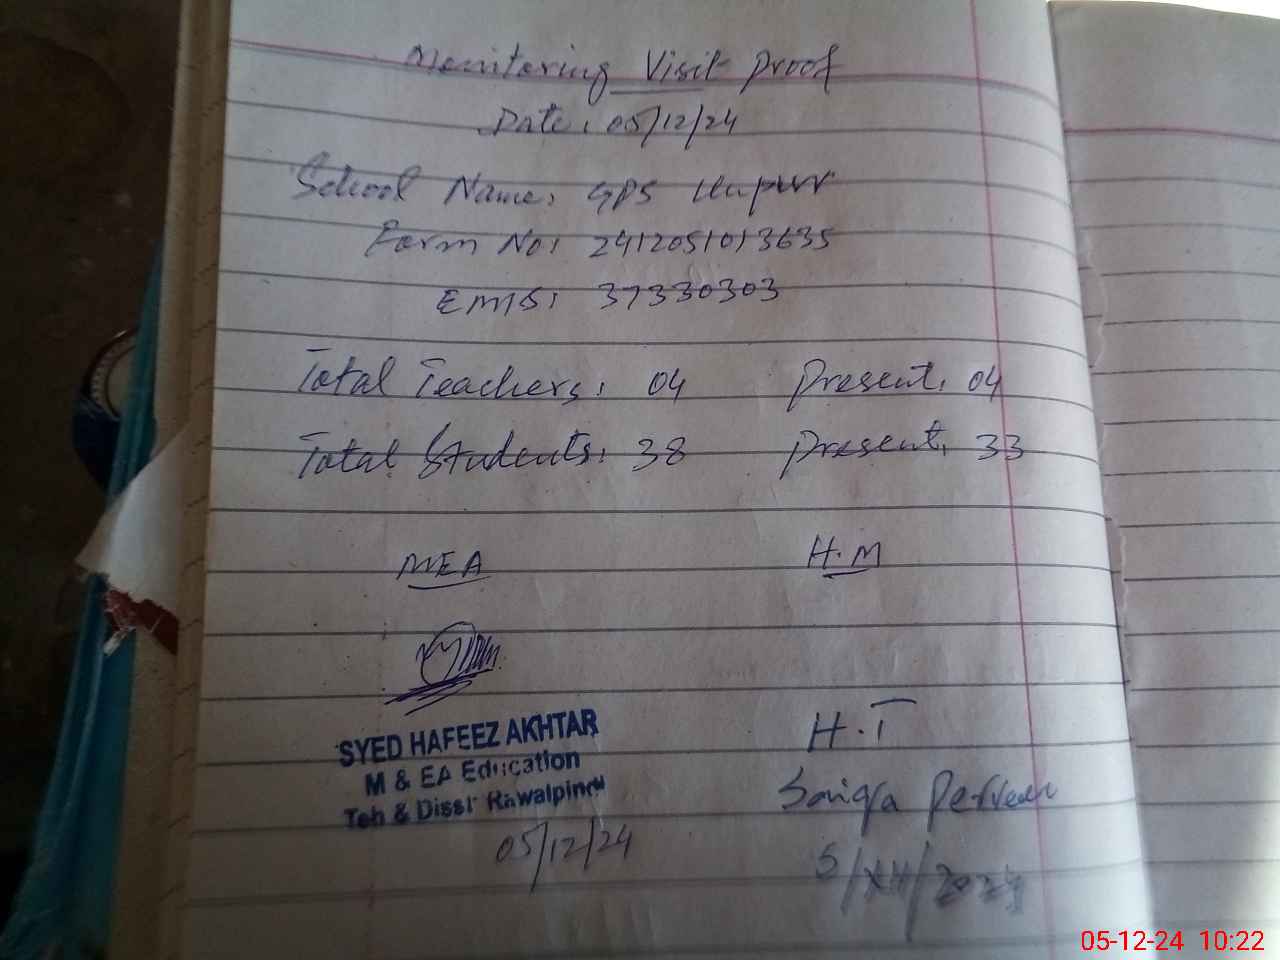 Monitoring Visit Proof
Date: 05/12/24
School Name: GPS
Form No: 2412051013635
EMIS: 37330303
Total Teachers: 04 Present: 04
Total Students: 38 Present: 33
MEA H.M
SYED HAFEEZ AKHTAR
M & EA Education
Teh & Disst Rawalpindi
05/12/24
H.T
Saiqa Perveen
05-12-24 10:22